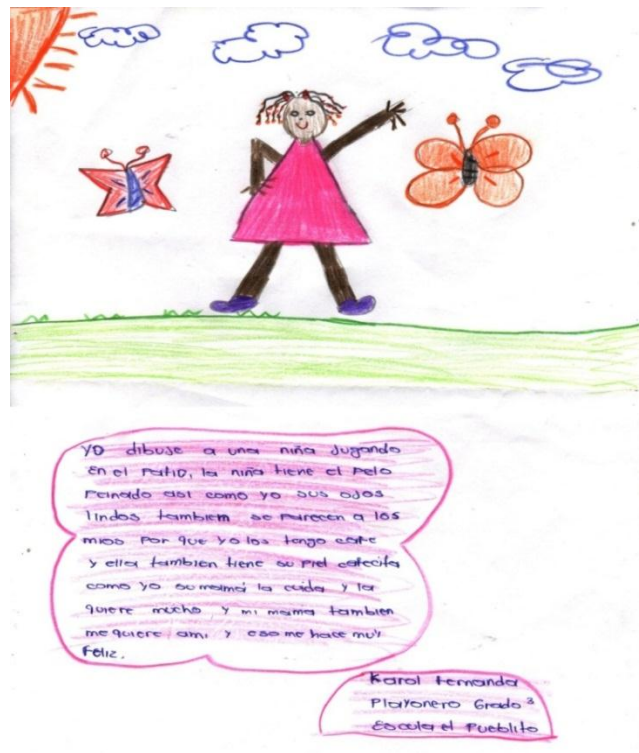 Yo dibuje a una niña Jugando
En el Patio, la niña tiene el pelo
Peinado asi como yo sus ojos
lindos tambiem se parecen a los
mios Por que yo los tengo cafe
y ella tambien tiene su piel cafecita
como yo su mamá la cuida y la
quiere mucho y mi mama tambien
me quiere ami, y eso me hace muy
Feliz.
Karol Fernanda
Playonero Grado 3
Escuela el Pueblito